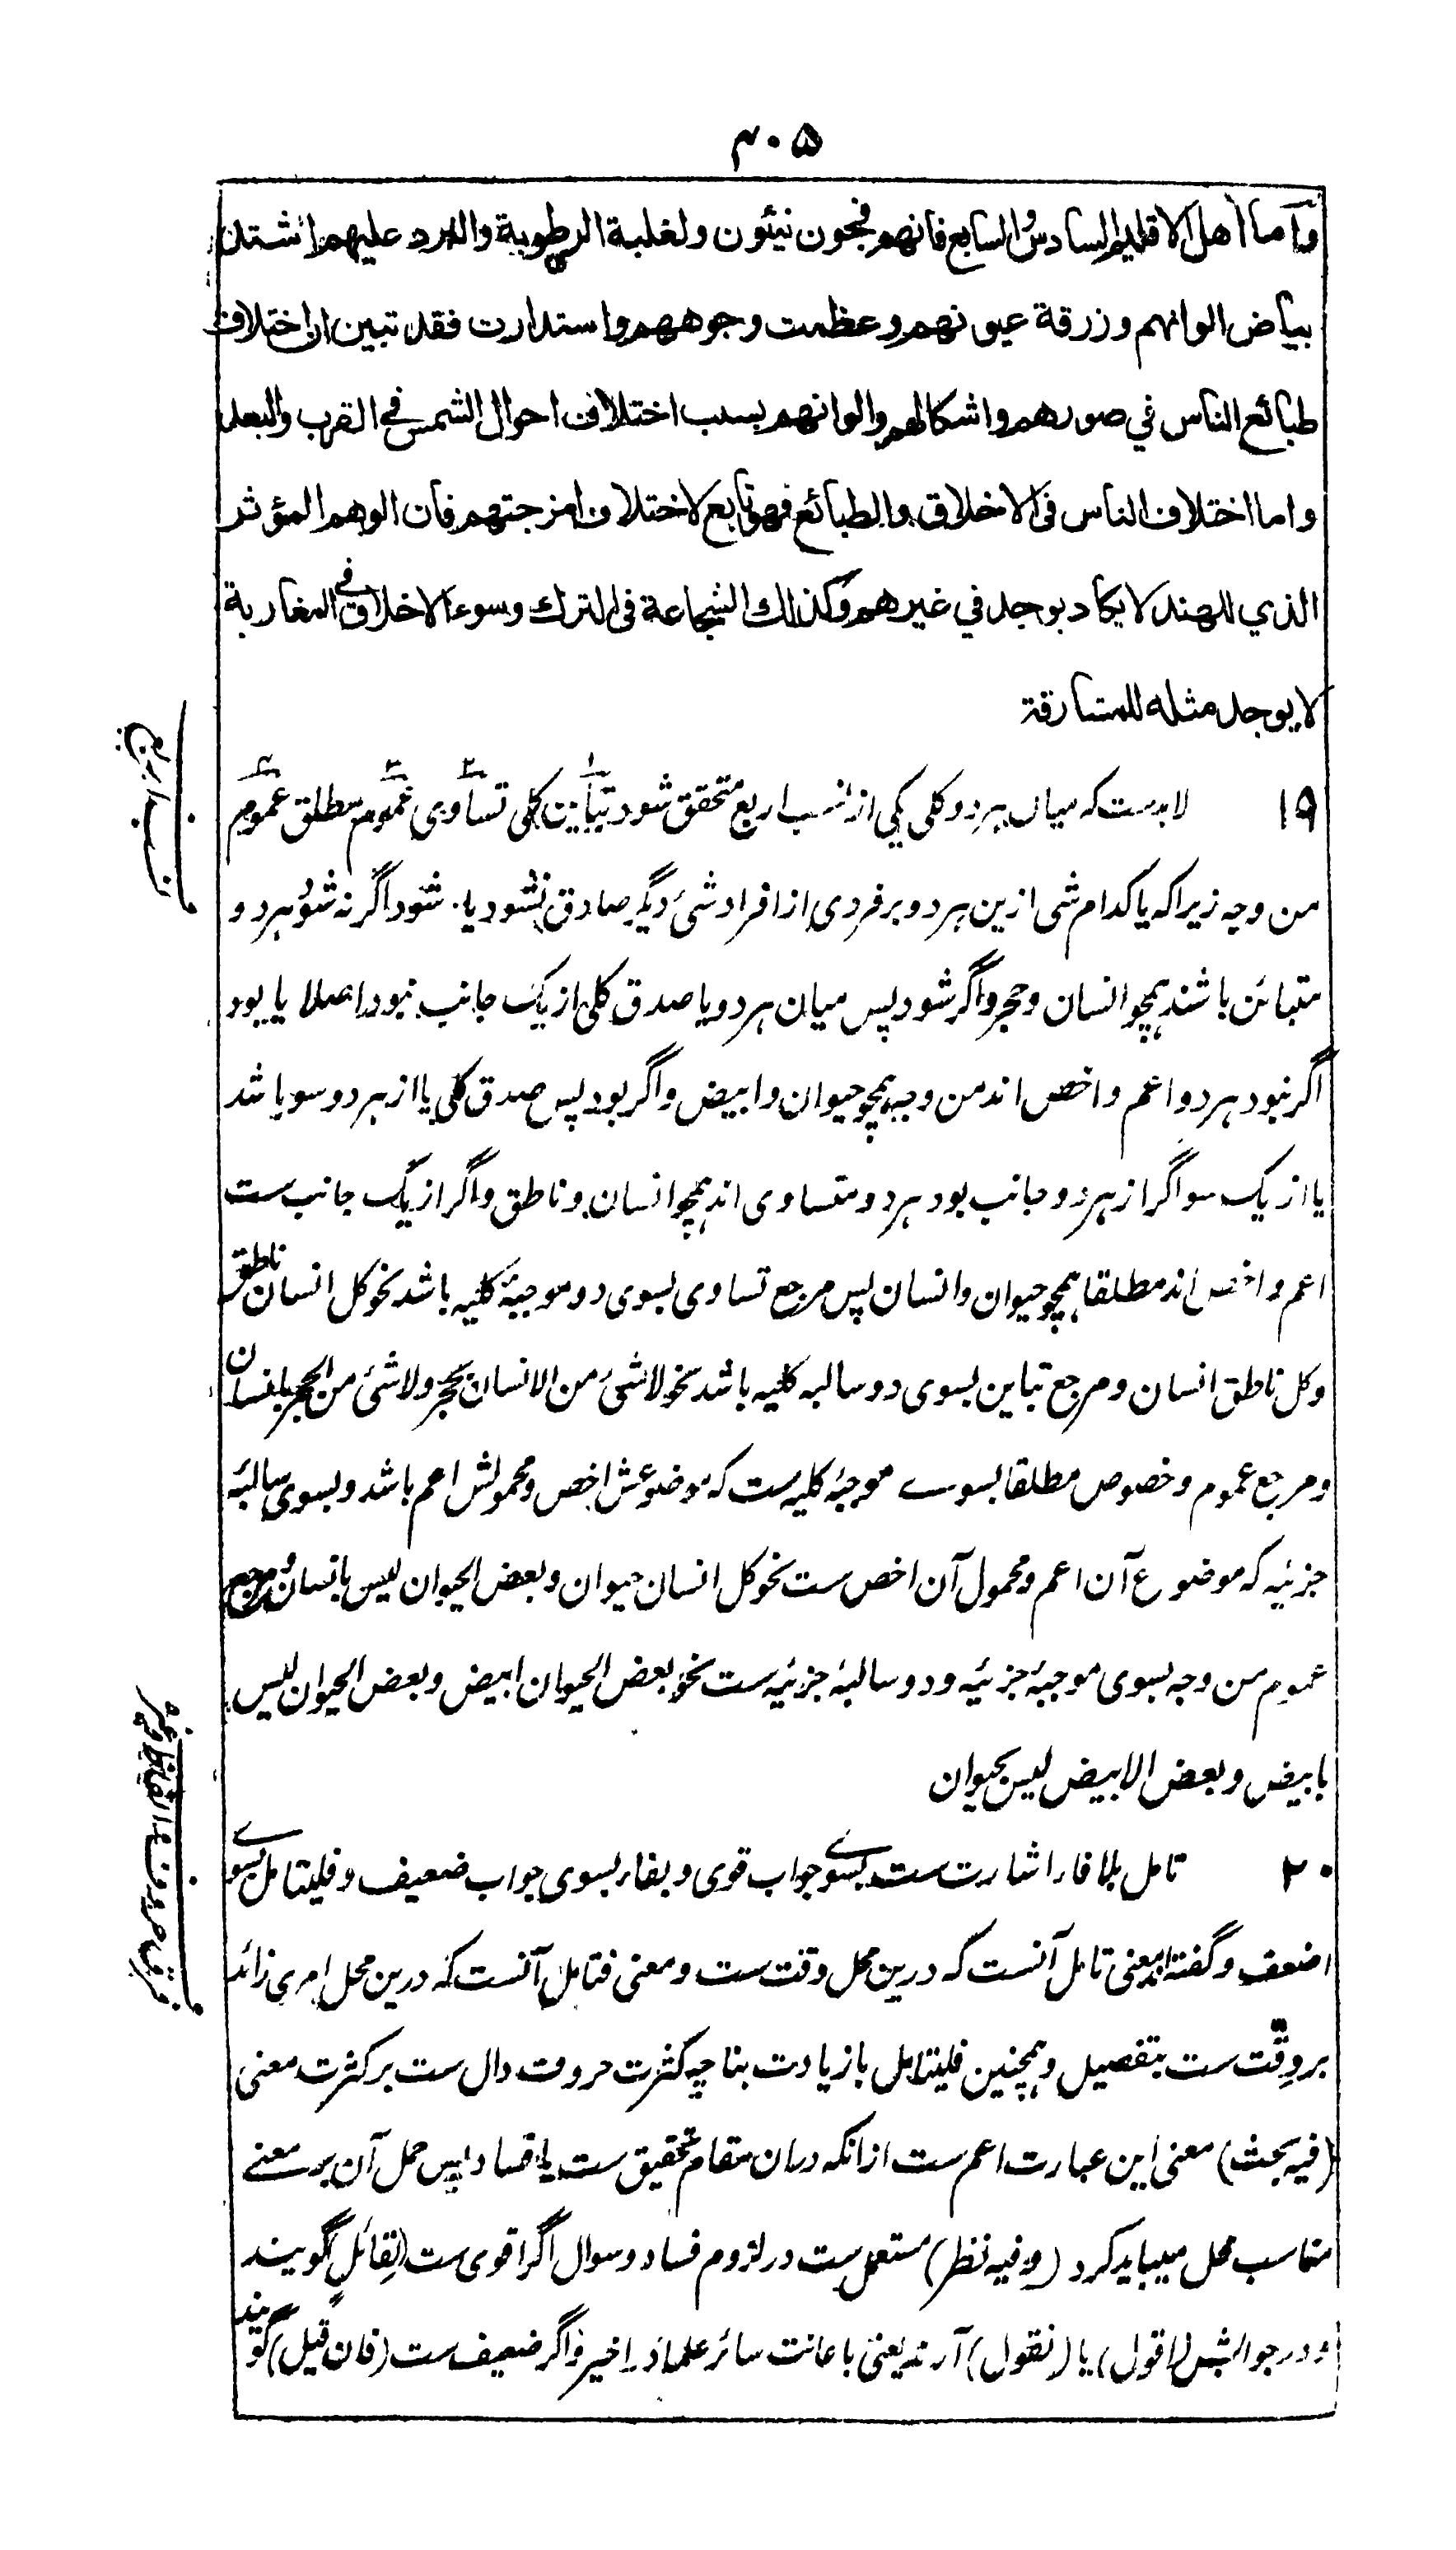 ۴۰۵
واما اهل الاقليم السادس والسابع فانهم فجون نيئون ولغلبة الرطوبة والبرد عليهم اشتد
بياض الوانهم وزرقة عيونهم وعظمت وجوههم واستدارت فقد تبين ان اختلاف
طبائع الناس في صورهم واشكالهم والوانهم بسبب اختلاف احوال الشمس في القرب والبعد
واما اختلاف الناس في الاخلاق والطبائع فهو تابع لاختلاف امزجتهم فان الوهم المؤثر
الذي للهند لا يكاد يوجد في غيرهم وكذلك الشجاعة في الترك وسوء الاخلاق في المغاربة
لا يوجد مثله للمشارقة
۱۹ لابدست که میان هر دو کلی یکی از نسب اربع متحقق شود تباین کلی تساوی عموم مطلق عموم
من وجه زیراکه یا کدام شی ازین هر دو بر فردی از افراد شئ دیگر صادق نشود یا شود اگر نه شود هر دو
متبائن باشند همچو انسان وحجر واگر شود پس میان هر دو یا صدق کلی از یک جانب نبود اصلا یا بود
اگر نبود هر دو اعم واخص اند من وجه همچو حیوان وابیض واگر بود پس صدق کلی یا از هر دو سو باشد
یا از یک سو اگر از هر دو جانب بود هر دو متساوی اند همچو انسان وناطق واگر از یک جانب ست
اعم واخص اند مطلقا همچو حیوان وانسان پس مرجع تساوی بسوی دو موجبۂ کلیه باشد نحو کل انسان ناطق
وکل ناطق انسان ومرجع تباین بسوی دو سالبه کلیه باشد نحو لاشئ من الانسان بحجر ولاشئ من الحجر بانسان
ومرجع عموم وخصوص مطلقا بسوے موجبۂ کلیه ست که موضوعش اخص ومحمولش اعم باشد وبسوی سالبۂ
جزئیه که موضوع آن اعم ومحمول آن اخص ست نحو کل انسان حیوان وبعض الحیوان لیس بانسان ومرجع
عموم من وجه بسوی موجبۂ جزئیه ودو سالبۂ جزئیه ست نحو بعض الحیوان ابیض وبعض الحیوان لیس
بابیض وبعض الابیض لیس بحیوان
۲۰ تامل بلا فاء اشارت ست بسوے جواب قوی وبفاء بسوی جواب ضعیف وفلیتامل بسوے
اضعف وگفته اند معنی تامل آنست که درین محل دقت ست ومعنی فتامل آنست که درین محل امری زائد
بر دقّت ست بتفصیل وهمچنین فلیتامل بازیادت بنا چه کثرت حروف دال ست بر کثرت معنی
(فیه بحث) معنی این عبارت اعم ست ازانکه دران مقام تحقیق ست یا فساد پس حمل آن بر معنے
مناسب محل میباید کرد (وفیه نظر) مستعمل ست در لزوم فساد وسوال اگر اقوی ست (لقائل) گویند
ودر جوابش (اقول) یا (نقول) آرند یعنی باعانت سائر علماء در اخیر واگر ضعیف ست (فان قیل) گویند
نسب اربع